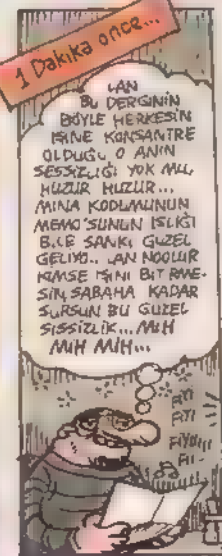 1 Dakika önce...
LAN
BU DERGİNİN
BÖYLE HERKESİN
İŞİNE KONSANTRE
OLDUĞU O ANIN
SESSİZLİĞİ YOK MU,
HUZUR HUZUR...
MINA KODUMUNUN
MEMO'SUNUN ISLIĞI
BİLE SANKİ GÜZEL
GELİYO.. LAN NOOLUR
KİMSE İŞİNİ BİTİRME-
SİN, SABAHA KADAR
SÜRSÜN BU GÜZEL
SESSİZLİK... MIH
MIH MIH...
FİYU